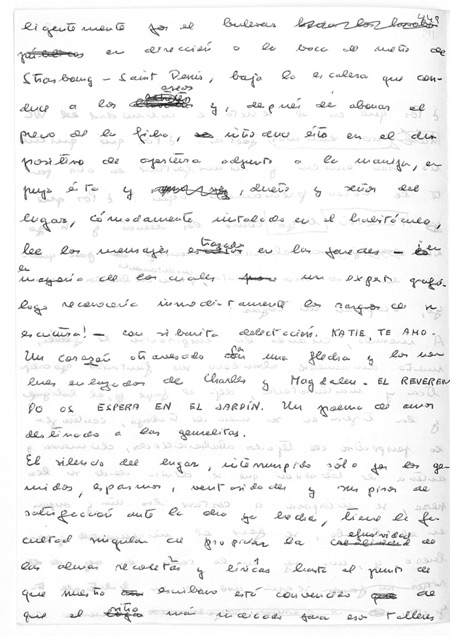 443
ligentemente por el bulevar
en dirección a la boca de metro de
Strasbourg - Saint Denis, baja la escalera que con-
duce a los aseos y, después de abonar el
precio de la ficha, introduce ésta en el dis
positivo de apertura adjunto a la manija, em
puja ésta y, dueño y señor del
lugar, cómodamente instalado en el habitáculo,
lee los mensajes trazados en las paredes -
la mayoría de los cuales un experto grafó-
logo reconocería inmediatamente los rasgos de su
escritura! - con sibarita delectación. KATIE, TE AMO.
Un corazón atravesado por una flecha y los nom
bres enlazados de Charles y Magdalen. EL REVEREN
DO OS ESPERA EN EL JARDÍN. Un poema de amor
destinado a las gemelitas.
El silencio del lugar, interrumpido sólo por los ge-
midos, espasmos, ventosidades y suspiros de
satisfacción ante la obra ya hecha, tiene la fa-
cultad singular de propiciar la efusividad
de las almas recoletas y líricas hasta el punto de
que nuestro escribano está convencido de
que el sitio más indicado para esos talleres